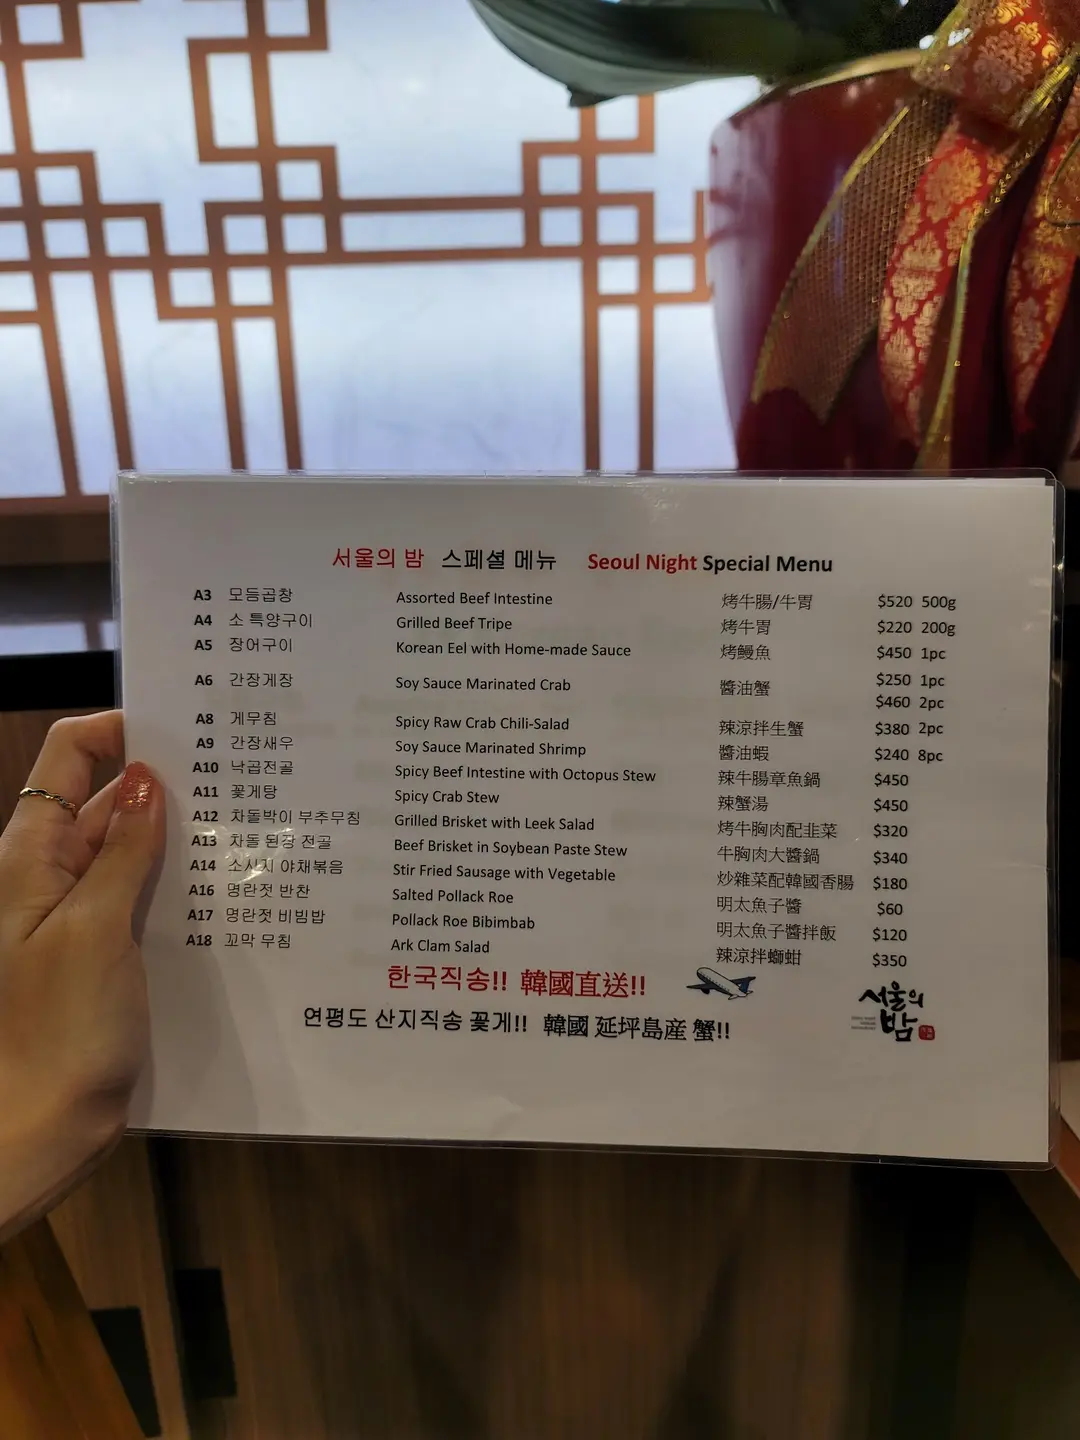 서울의 밤 스페셜 메뉴 Seoul Night Special Menu
A3 모듬곱창 Assorted Beef Intestine 烤牛腸/牛胃 $520 500g
A4 소 특양구이 Grilled Beef Tripe 烤牛胃 $220 200g
A5 장어구이 Korean Eel with Home-made Sauce 烤鰻魚 $450 1pc
A6 간장게장 Soy Sauce Marinated Crab 醬油蟹 $250 1pc
$460 2pc
A8 게무침 Spicy Raw Crab Chili-Salad 辣涼拌生蟹 $380 2pc
A9 간장새우 Soy Sauce Marinated Shrimp 醬油蝦 $240 8pc
A10 낙곱전골 Spicy Beef Intestine with Octopus Stew 辣牛腸章魚鍋 $450
A11 꽃게탕 Spicy Crab Stew 辣蟹湯 $450
A12 차돌박이 부추무침 Grilled Brisket with Leek Salad 烤牛胸肉配韭菜 $320
A13 차돌 된장 전골 Beef Brisket in Soybean Paste Stew 牛胸肉大醬鍋 $340
A14 소시지 야채볶음 Stir Fried Sausage with Vegetable 炒雜菜配韓國香腸 $180
A16 명란젓 반찬 Salted Pollack Roe 明太魚子醬 $60
A17 명란젓 비빔밥 Pollack Roe Bibimbab 明太魚子醬拌飯 $120
A18 꼬막 무침 Ark Clam Salad 辣涼拌螄蚶 $350
한국직송!! 韓國直送!!
연평도 산지직송 꽃게!! 韓國 延坪島産 蟹!!
서울의
밤